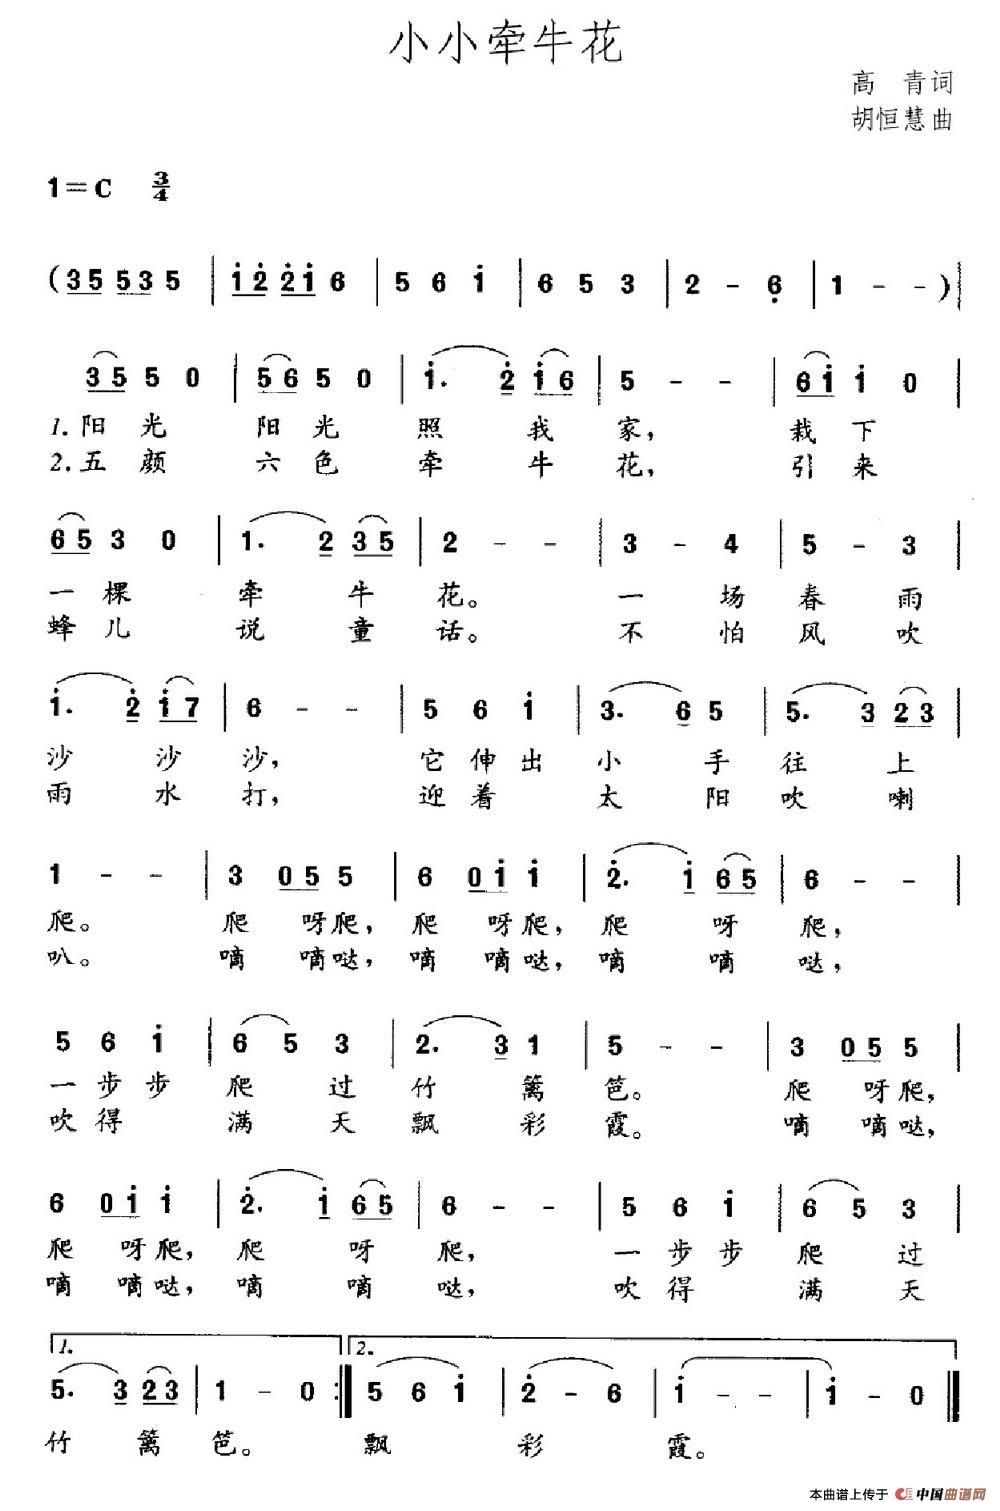 小小牵牛花
高 青词
胡恒慧曲
1=C 3/4
(35 53 5 | i̇2̇ 2̇i̇ 6 | 5 6 i̇ | 6 5 3 | 2 - 6̣ | 1 - - )|
35 5 0 | 56 5 0 | i̇. 2̇ i̇6 | 5 - - | 6i̇ i̇ 0 |
1.阳 光 阳 光 照 我 家, 栽 下
2.五 颜 六 色 牵 牛 花, 引 来
65 3 0 | 1. 2 35 | 2 - - | 3 - 4 | 5 - 3 |
一 棵 牵 牛 花。 一 场 春 雨
蜂 儿 说 童 话。 不 怕 风 吹
i̇. 2̇ i̇7 | 6 - - | 5 6 i̇ | 3. 6 5 | 5. 3 23 |
沙 沙 沙, 它 伸 出 小 手 往 上
雨 水 打, 迎 着 太 阳 吹 喇
1 - - | 3 055 5 | 6 0i̇i̇ i̇ | 2̇. i̇ 65 | 6 - - |
爬。 爬 呀爬, 爬 呀爬, 爬 呀 爬,
叭。 嘀 嘀哒, 嘀 嘀哒, 嘀 嘀 哒,
5 6 i̇ | 6 5 3 | 2. 3 1 | 5 - - | 3 055 5 |
一 步 步 爬 过 竹 篱 笆。 爬 呀爬,
吹 得 满 天 飘 彩 霞。 嘀 嘀哒,
6 0i̇i̇ i̇ | 2̇. i̇ 65 | 6 - - | 5 6 i̇ | 6 5 3 |
爬 呀爬, 爬 呀 爬, 一 步 步 爬 过
嘀 嘀哒, 嘀 嘀 哒, 吹 得 满 天
1. 2.
5. 3 23 | 1 - 0 :‖ 5 6 i̇ | 2̇ - 6 | i̇ - - | i̇ - 0 ‖
竹 篱 笆。 飘 彩 霞。
本曲谱上传于 中国曲谱网